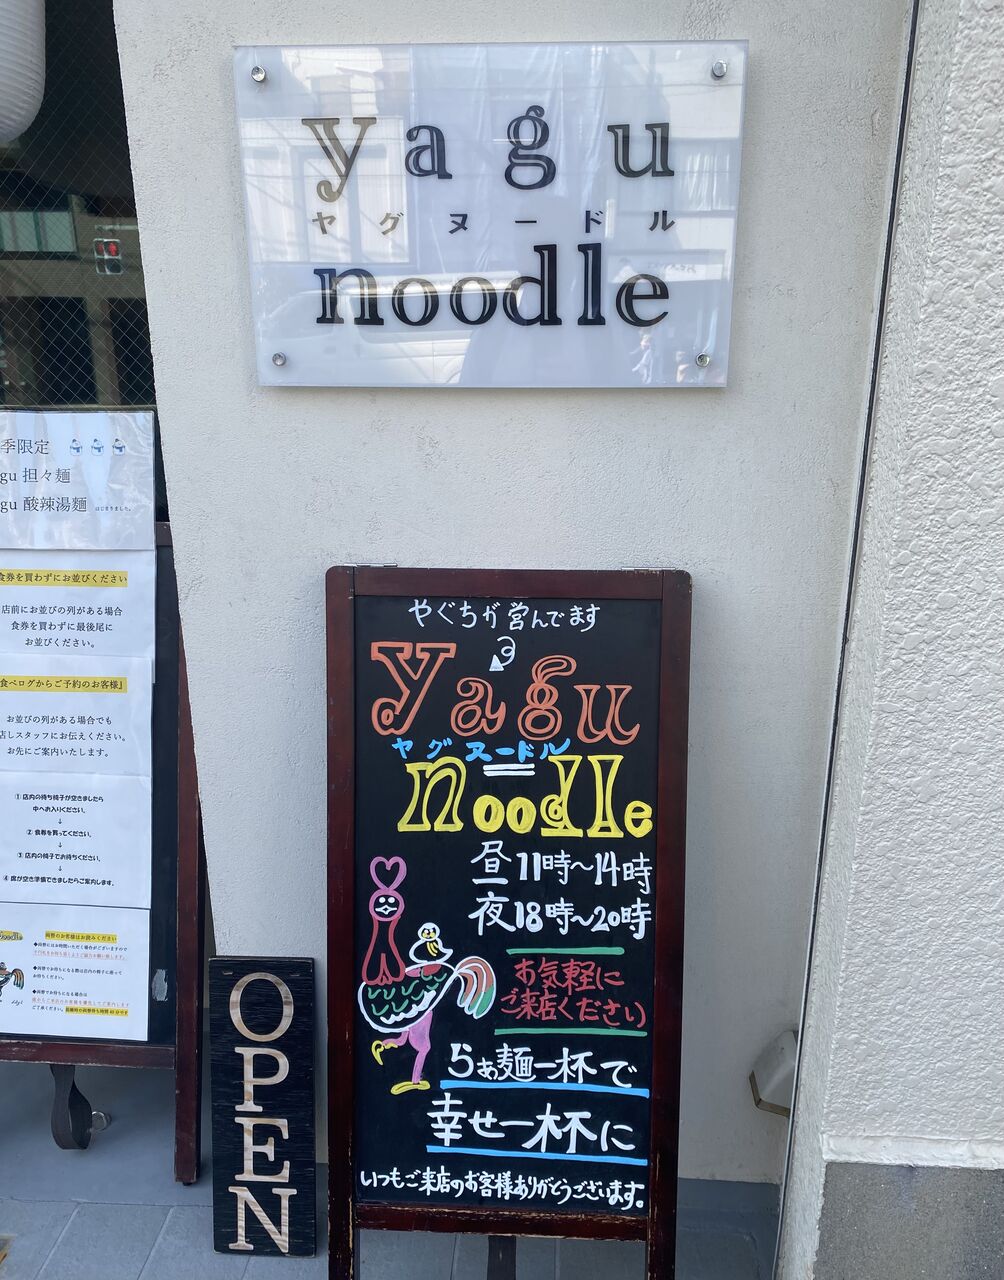 yagu
ヤグヌードル
noodle
季限定
gu 担々麺
gu 酸辣湯麺 はじまりました。
食券を買わずにお並びください
店前にお並びの列がある場合
食券を買わずに最後尾に
お並びください。
食べログからご予約のお客様』
お並びの列がある場合でも
店しスタッフにお伝えください。
お先にご案内いたします。
① 店内の待ち椅子が空きましたら
中へお入りください。
↓
② 食券を買ってください。
↓
③ 店内の椅子でお待ちください。
↓
④ 席が空き準備できましたらご案内します。
noodle
OPEN
やぐちが営んでます
yagu
ヤグヌードル
noodle
昼11時～14時
夜18時～20時
お気軽に
ご来店ください
らぁ麺一杯で
幸せ一杯に
いつもご来店のお客様ありがとうございます。